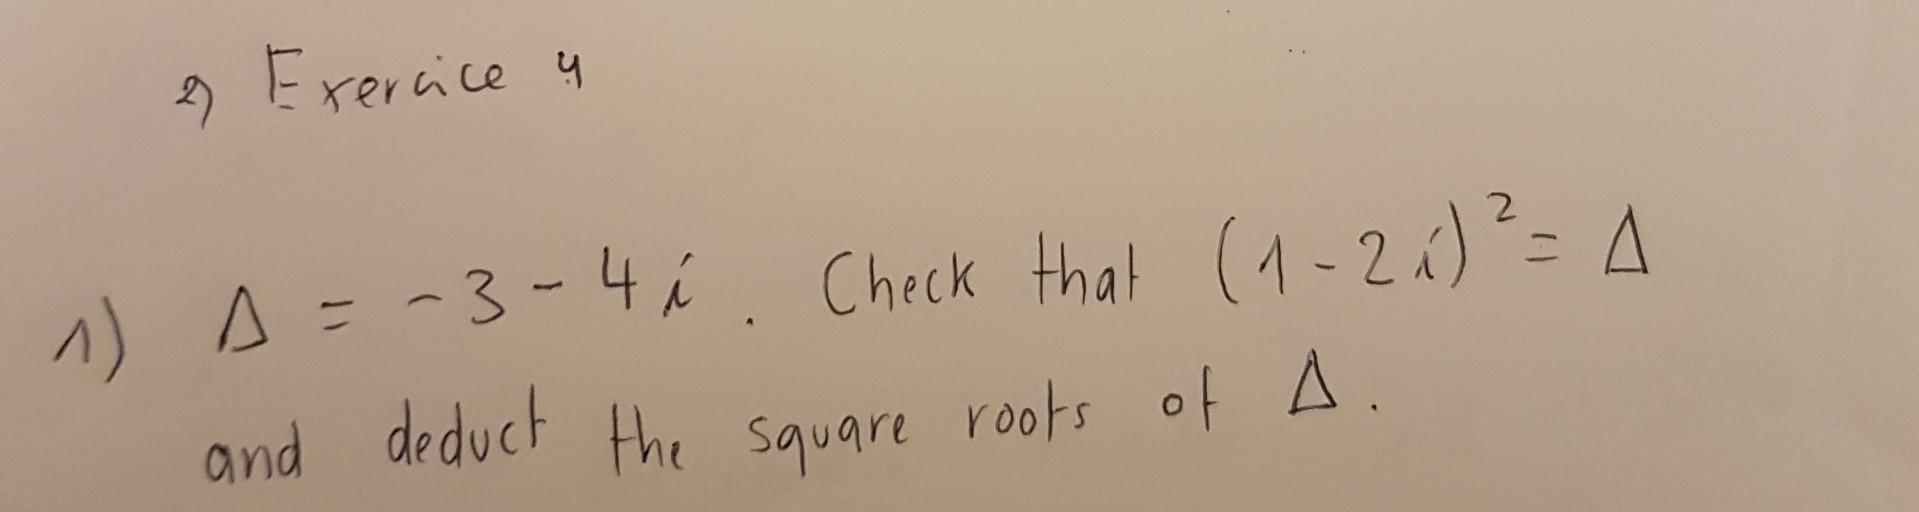 2) Exercice 4
1) Δ = -3 - 4i. Check that (1-2i)² = Δ
and deduct the square roots of Δ.